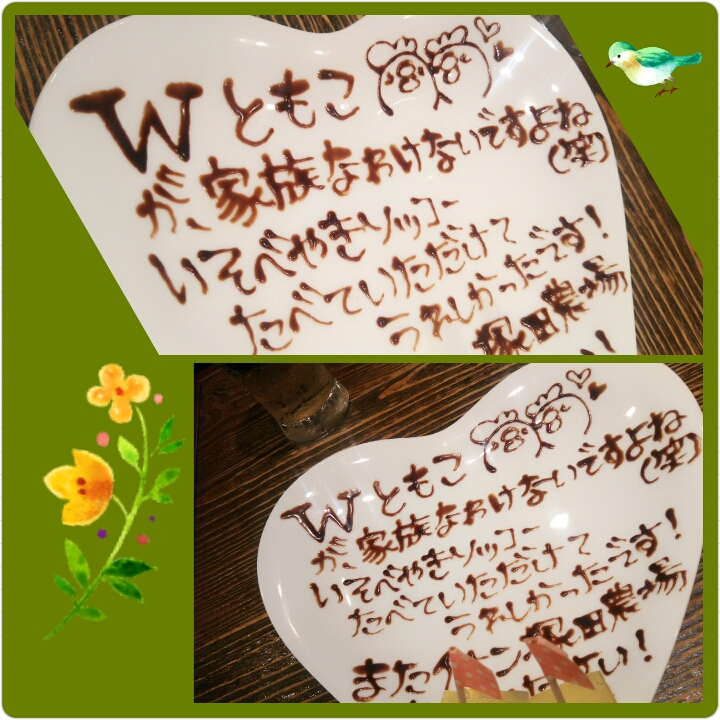 Wともこ
が、家族なわけないですよね
(笑)
いそべやきソッコー
たべていただけて
うれしかったです!
塚田農場
い!
Wともこ
が、家族なわけないですよね
(笑)
いそべやきソッコー
たべていただけて
うれしかったです!
塚田農場
また
い!